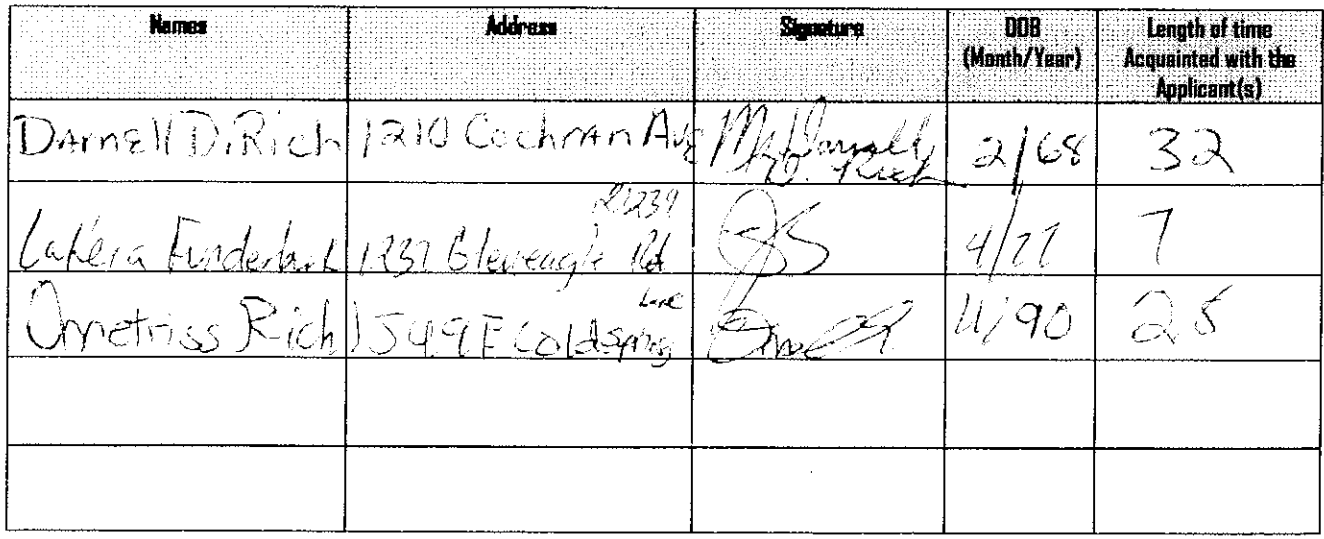 Names Address Signature DOB (Month/Year) Length of time Acquainted with the Applicant(s)
Darnell D. Rich 1210 Cochran Ave Mr. Darnell D. Rich 2/68 32
21239
Lakeia Funderburk 1237 Gleneagle Rd 4/77 7
Lane
Ometriss Rich 1549 E Coldspring 11/90 28